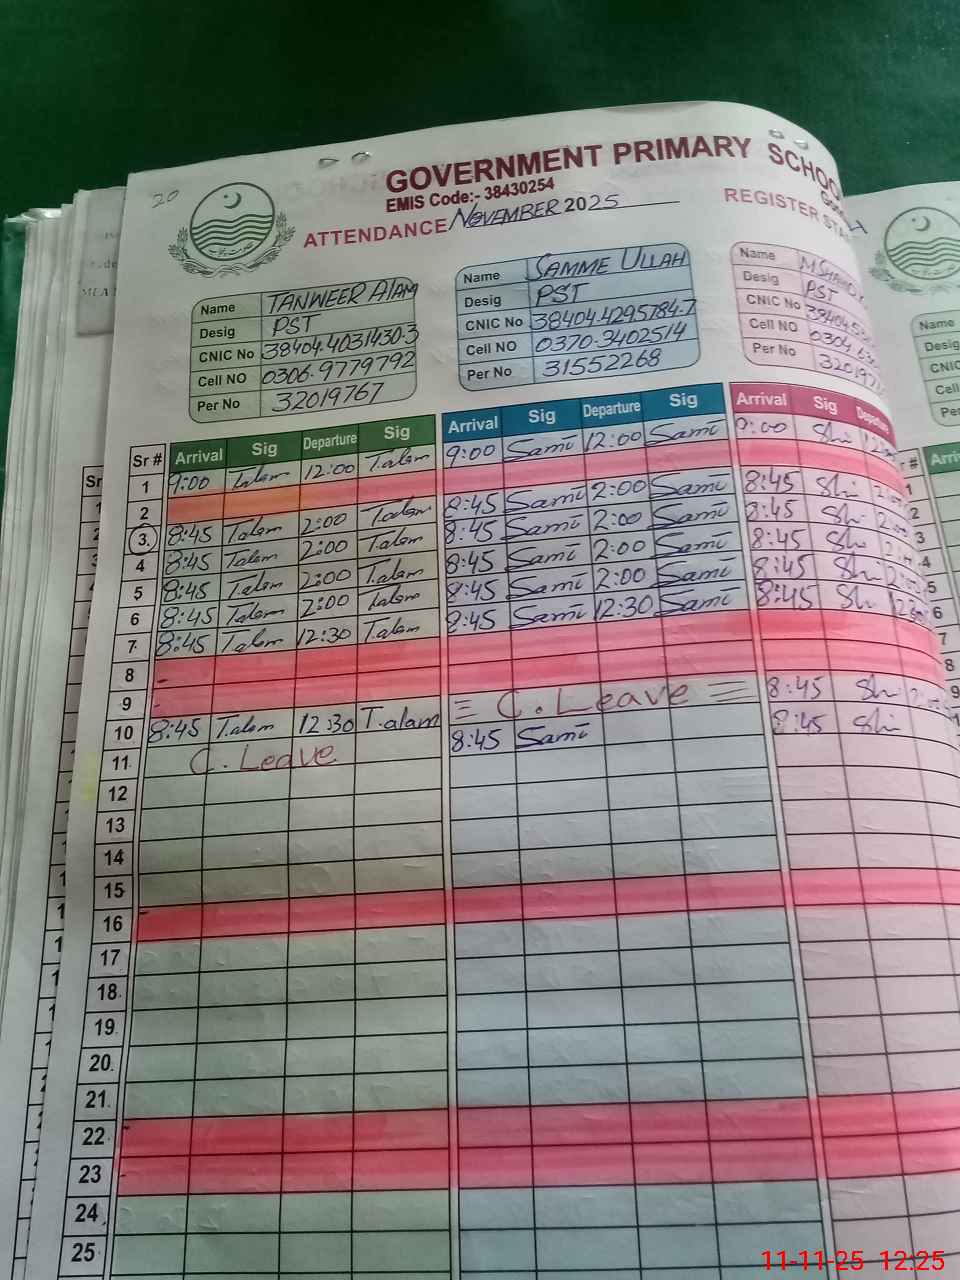 20
GOVERNMENT PRIMARY SCHOO
EMIS Code:- 38430254
ATTENDANCE NOVEMBER 2025 REGISTER STA
Name TANWEER ALAM
Desig PST
CNIC No 38404.4031430.3
Cell NO 0306.9779792
Per No 32019767
Name SAMME ULLAH
Desig PST
CNIC No 38404.4295784.7
Cell NO 0370.3402514
Per No 31552268
Name
Desig PST
CNIC No
Cell NO
Per No
Name
Desig
CNIC
Cell
Per
Sr # Arrival Sig Departure Sig Arrival Sig Departure Sig Arrival Sig Departure
1 9:00 Talam 12:00 T.alam 9:00 Sami 12:00 Sami 9:00 Sh
2
3 8:45 Talam 2:00 Talam 8:45 Sami 2:00 Sami 8:45 Sh
4 8:45 Talam 2:00 Talam 8:45 Sami 2:00 Sami 8:45 Sh
5 8:45 Talam 2:00 Talam 8:45 Sami 2:00 Sami 8:45 Sh
6 8:45 Talam 2:00 Talam 8:45 Sami 2:00 Sami 8:45 Sh
7 8:45 Talam 12:30 Talam 8:45 Sami 12:30 Sami 8:45 Sh
8
9
10 8:45 T.alam 12:30 T.alam C. Leave 8:45 Sh
11 C. Leave 8:45 Sami 8:45 Sh
12
13
14
15
16
17
18
19
20
21
22
23
24
25
11-11-25 12:25